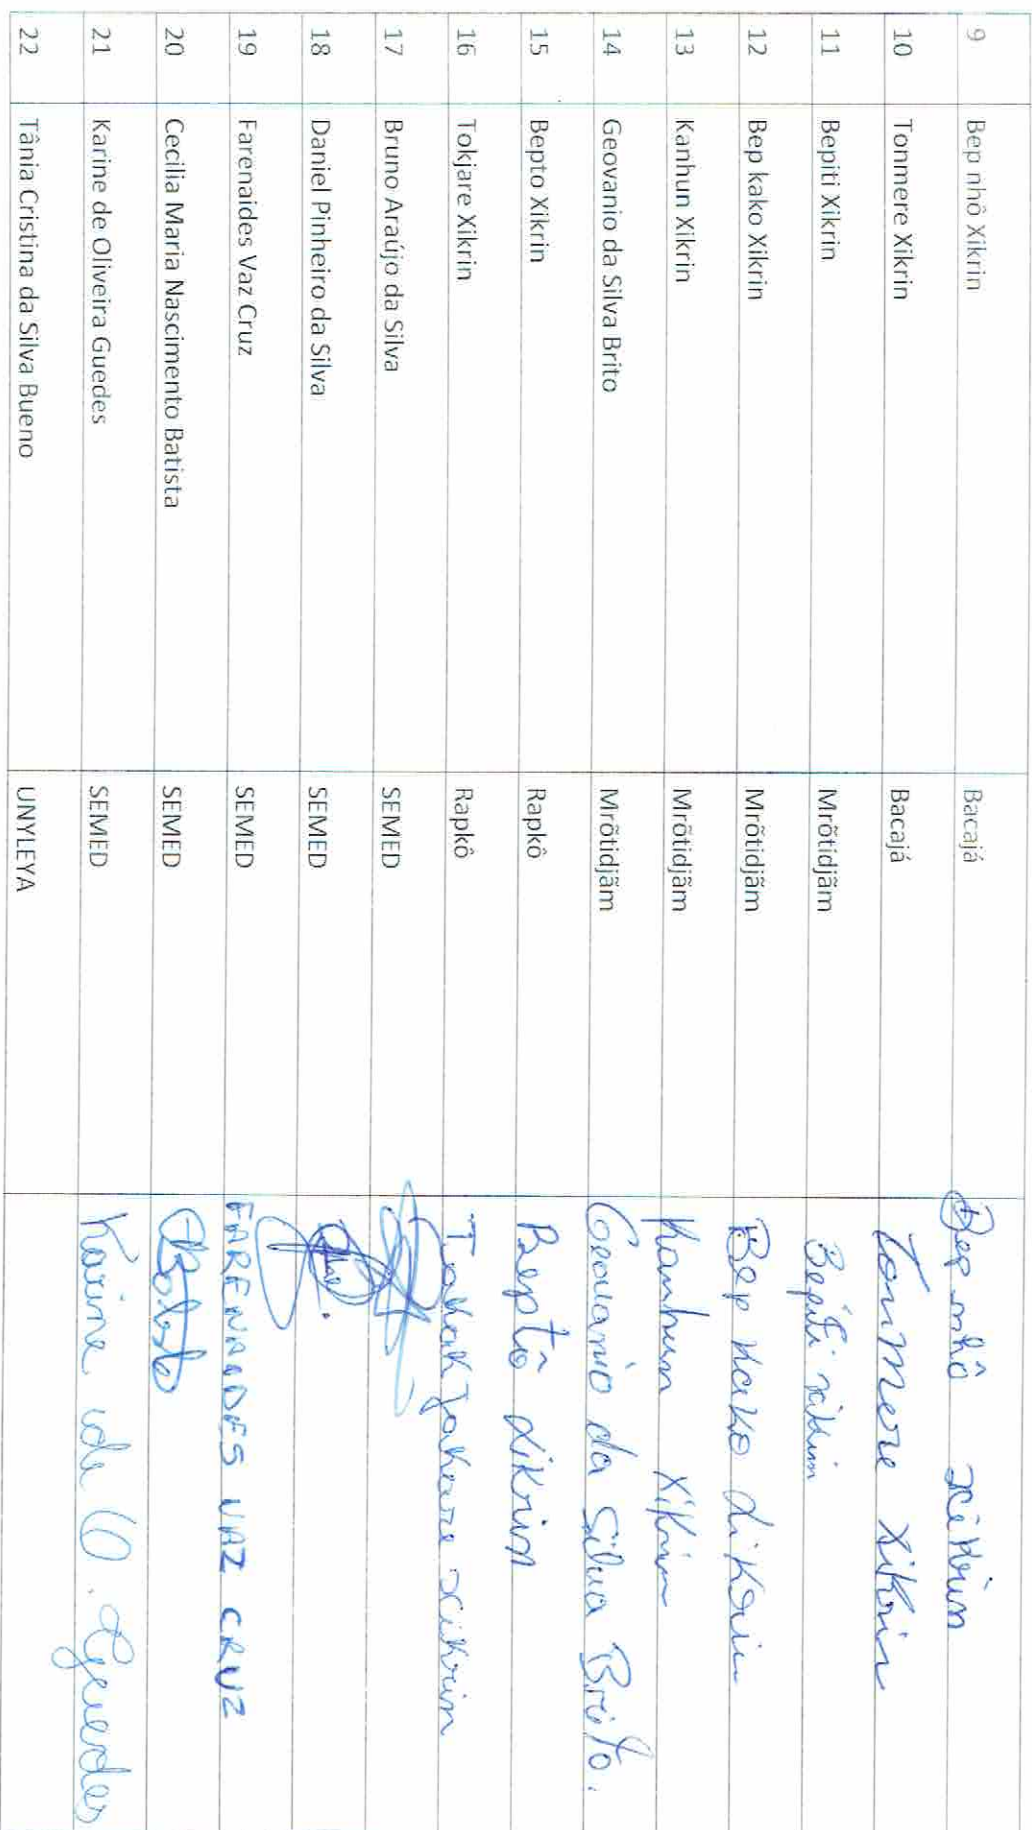 9 Bep nhô Xikrin Bacajá Bep nhô xikrin
10 Tonmere Xikrin Bacajá Tonmere Xikrin
11 Bepiti Xikrin Mrõtidjãm Bepiti xikrin
12 Bep kako Xikrin Mrõtidjãm Bep Kako Xikrin
13 Kanhun Xikrin Mrõtidjãm Kanhun Xikrin
14 Geovanio da Silva Brito Mrõtidjãm Geovanio da Silva Brito.
15 Bepto Xikrin Rapkô Beptô Xikrin
16 Tokjare Xikrin Rapkô xikrin
17 Bruno Araújo da Silva SEMED
18 Daniel Pinheiro da Silva SEMED
19 Farenaides Vaz Cruz SEMED FARENAIDES VAZ CRUZ
20 Cecilia Maria Nascimento Batista SEMED
21 Karine de Oliveira Guedes SEMED Karine de O. Guedes
22 Tânia Cristina da Silva Bueno UNYLEYA